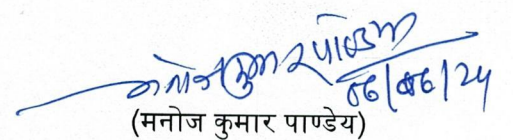 मनोज कुमार पाण्डेय
06/06/24
(मनोज कुमार पाण्डेय)